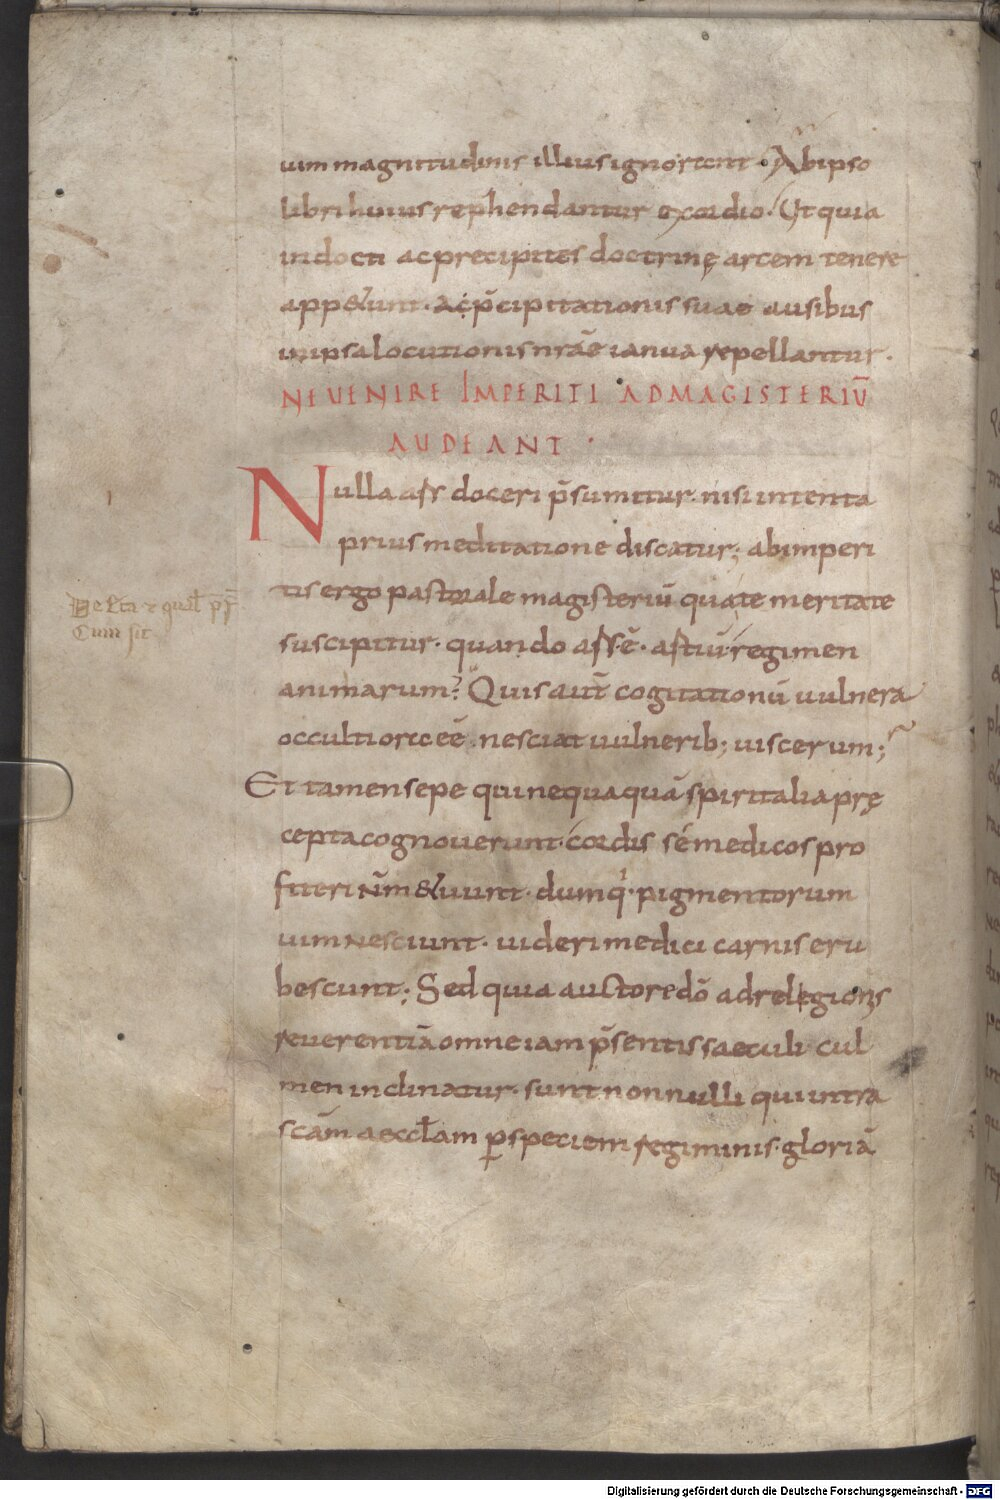 uim magnitudinis illius ignorent. Ab ipso
libri huius rephendantur exordio. Ut quia
indocti ac precipites doctrinę artem tenere
appetunt. a cp̄cipitationis suae ausibus
in ipsa locutionis nrāe ianua repellantur.
NE UENIRE IMPERITI AD MAGISTERIŪ
AUDEANT.
Nulla ars doceri p̄sumitur. nisi intenta
prius meditatione discatur; ab imperi
tis ergo pastorale magisteriū qua te meritate
suscipitur. quando ars .ē. artiū regimen
animarum? Quis aut̄ cogitationū uulnera
occultiore eē. nesciat uulnerib; uiscerum;
Et tamen sepe qui nequaquā spiritalia prę
cepta cognouerunt. cordis sé medicos pro
fiteri n̄ m&uunt. dumq́. pigmentorum
uim nesciunt. uideri medici carnis eru
bescunt; Sed quia auctore dō ad relegionis
reuerentiā omne iam p̄sentis saeculi cul
men inclinatur. sunt nonnulli qui intra
scām aeccƚam p̱ speciem regiminis. gloriā
Cum sit
Digitalisierung gefördert durch die Deutsche Forschungsgemeinschaft - DFG